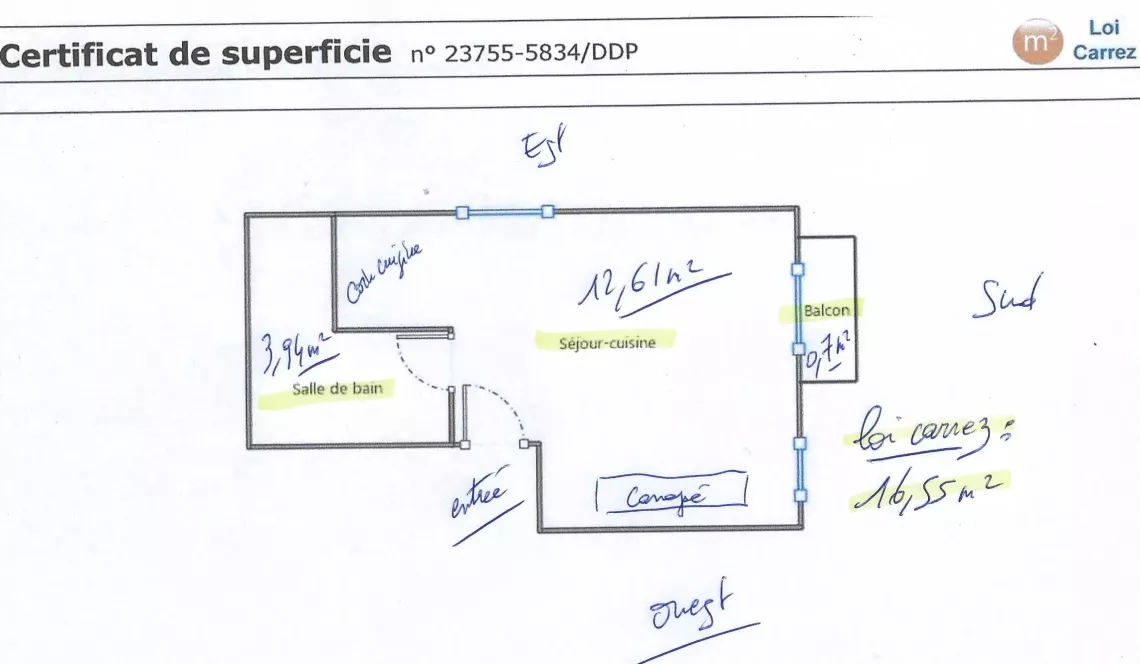 Certificat de superficie n° 23755-5834/DDP
m²
Loi
Carrez
Est
coin cuisine
12,61 m²
Sud
Balcon
0,7 m²
Séjour-cuisine
3,94 m²
Salle de bain
loi carrez :
16,55 m²
entrée
Canapé
ouest